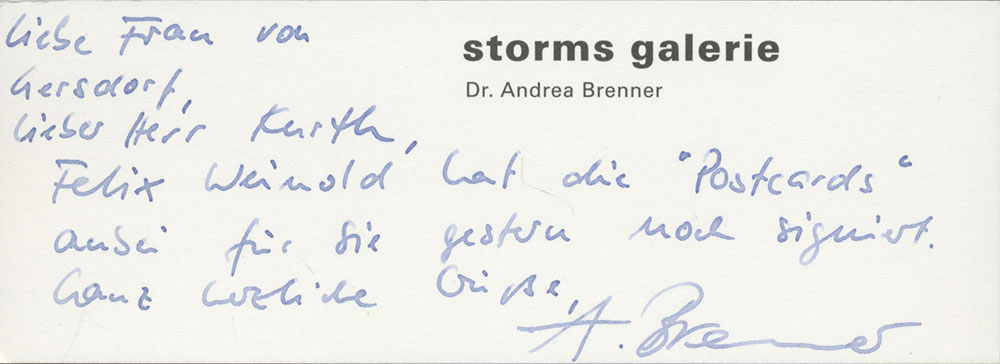 storms galerie
Dr. Andrea Brenner
Liebe Frau von
Gersdorf,
lieber Herr Kurth,
Felix Weinold hat die "Postcards"
anbei für Sie gestern noch signiert.
Ganz herzliche Grüße,
A. Brenner